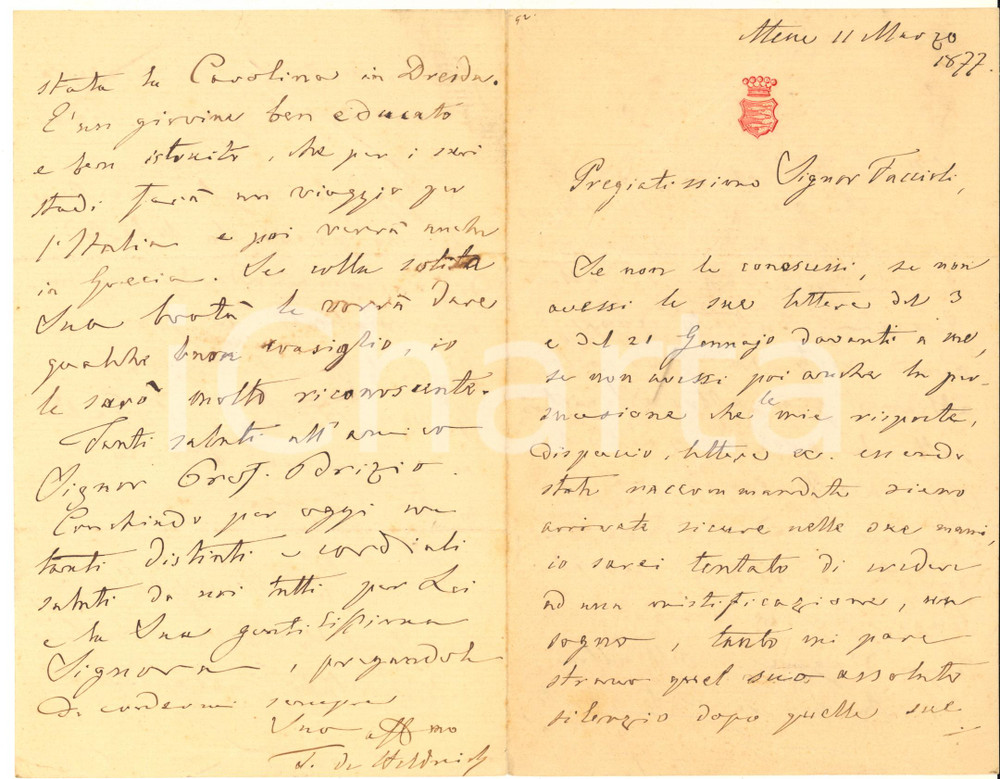 Atene 11 Marzo
1877.
Pregiatissimo Signor Faccioli,
Se non la conoscessi, se non
avessi le sue lettere del 3
e del 21 Gennajo davanti a me,
se non avessi poi anche la per-
suasione che le mie risposte,
dispaccio, lettere ec. essendo
state raccommandate siano
arrivate sicure nelle sue mani,
io sarei tentato di credere
ad una mistificazione, un
sogno, tanto mi pare
strano quel suo assoluto
silenzio dopo quelle sue
stata la Carolina in Dresda.
E' un giovine ben educato
e ben istruito, che per i suoi
studi farà un viaggio per
l'Italia e poi verrà anche
in Grecia. Se colla solita
Sua bontà le vorrà dare
qualche buon consiglio, io
le sarò molto riconoscente.
Tanti saluti all'amico
Signor Prof. Brizio.
Conchiudo per oggi con
tanti distinti e cordiali
saluti da noi tutti per Lei
e la Sua gentilissima
Signora, pregandola
di credermi sempre
Suo affmo
T. de Heldreich
iCharta